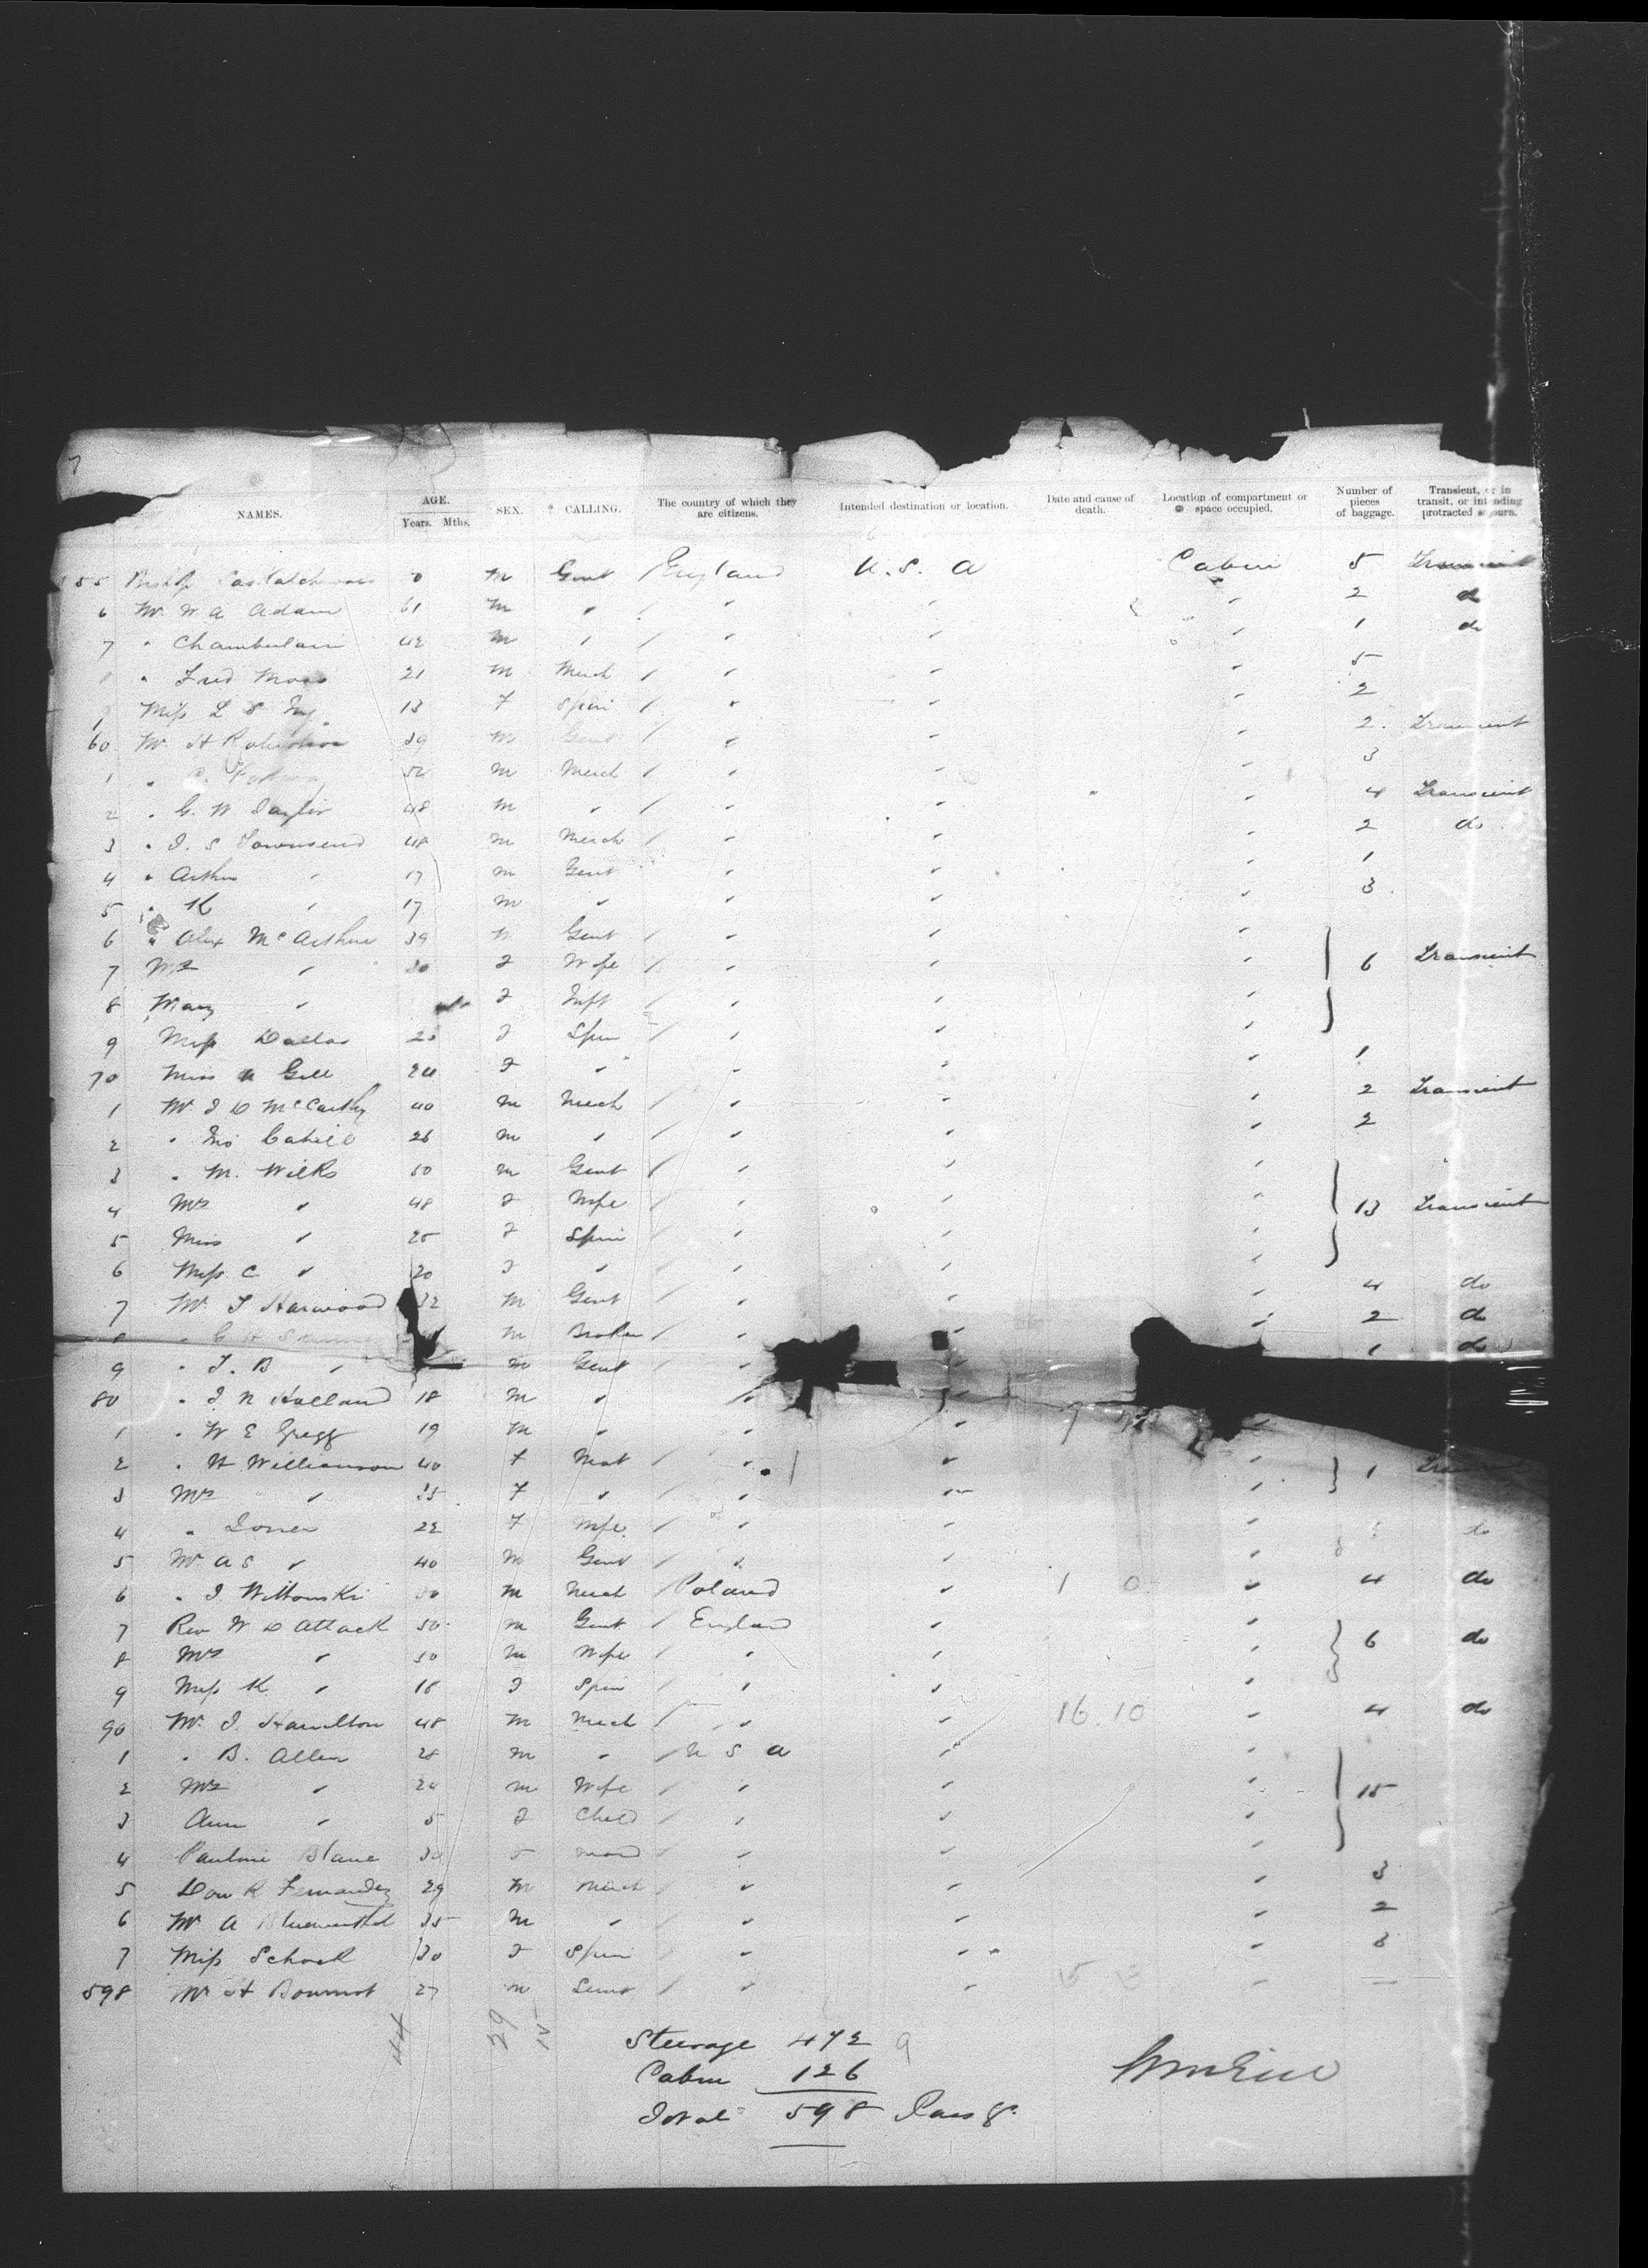 7
NAMES. AGE. Years. Mths. SEX. CALLING. The country of which they are citizens. Intended destination or location. Date and cause of death. Location of compartment or space occupied. Number of pieces of baggage. Transient, or in transit, or intending protracted sojourn.
55 Bishop Saskatchewan 0 M Gent England U.S.A Cabin 5 Transient
6 Mr W A Adam 61 M " " " " 2 do
7 " Chamberlain 42 M " " " " 1 do
" Fred Moss 21 M Merch " " " 5
Miss L S 13 F Spin " " " 2
60 Mr H Robertson 39 M Gent " " " 2 Transient
1 " 52 M Merch " " " 3
2 " G. W Taylor 48 M " " " " 4 Transient
3 " J. S Townsend 48 M Merch " " " 2 do
4 " Arthur " 17 M Gent " " " 1
5 " K " 17 M " " " " 3
6 " Alex McArthur 39 M Gent " " "
7 Mrs " 30 F Wife " " " 6 Transient
8 Mary " F Inft " " "
9 Miss Dallas 23 F Spin " " "
70 Miss A Gill 24 F " " " " 1
1 Mr J D McCarthy 40 M Merch " " " 2 Transient
2 " Jno Cahill 26 M " " " " 2
3 " M. Wilks 50 M Gent " " "
4 Mrs " 48 F Wife " " " 13 Transient
5 Miss " 25 F Spin " " "
6 Miss C " 20 F " " " "
7 Mr T Harwood 32 M Gent " " " 4 do
8 " M Broker " " " 2 do
9 " J. B " M Gent " 1 do
80 " J. N Holland 18 M " " "
1 " W E Gregg 19 M " " " "
2 " H Williamson 40 F Mat " " " 1
3 Mrs " 35 F " " " "
4 " Jones 22 F Wife " " " do
5 Mr A S " 40 M Gent " " "
6 " J. Wittowski 50 M Merch Poland " 1 0 " 4 do
7 Rev W D Attack 50 M Gent England " "
8 Mrs " 50 M Wife " " " 6 do
9 Miss K " 18 F Spin " " "
90 Mr J. Hamilton 48 M Merch " " 16 10 " 4 do
1 " B. Allen 28 M " U S A " "
2 Mrs " 24 M Wife " " " 15
3 Ann " 5 F Child " " "
4 Pauline Blanc 30 F Maid " " "
5 Don R Fernandez 29 M Merch " " " 3
6 Mr A Blumenthal 35 M " " " " 2
7 Miss Schock 30 F Spin " " " 3
598 Mr H 27 M " " " —
44 29 15
Steerage 472 9
Cabin 126
Total 598 Passgr.